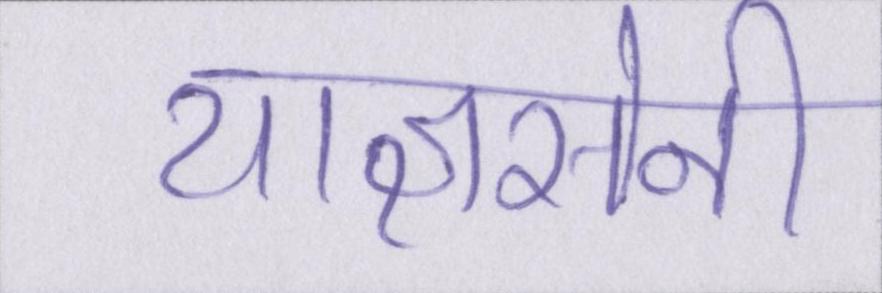 याज्ञसेनी